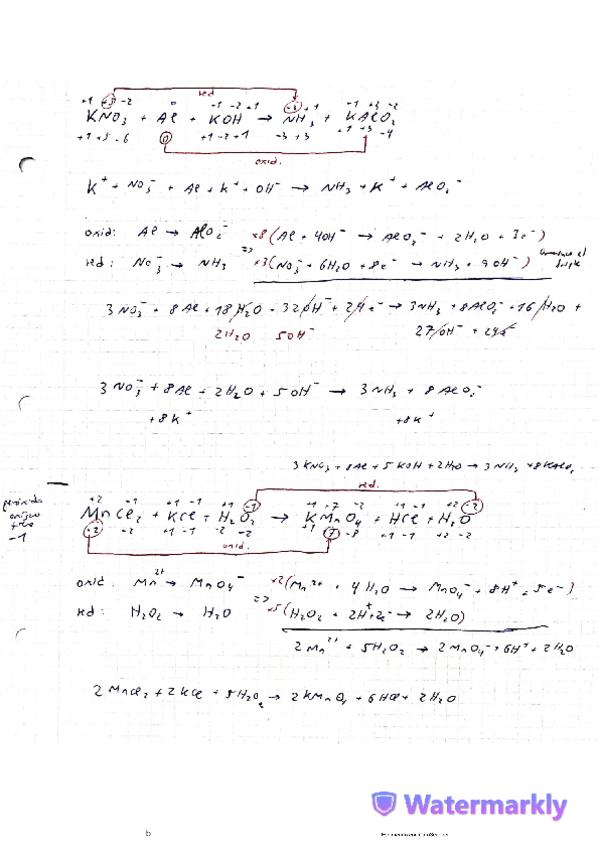 red
+1 +5 -2 0 -1 -2 +1 -3 +1 -1 +3 -2
KNO₃ + Al + KOH → NH₃ + KAlO₂
+1 +5 -6 0 +1 -2 +1 -3 +3 +1 +3 -4
oxid.
K⁺ + NO₃⁻ + Al + K⁺ + OH⁻ → NH₃ + K⁺ + AlO₂⁻
oxid: Al → AlO₂⁻ => ×8 (Al + 4OH⁻ → AlO₂⁻ + 2H₂O + 3e⁻)
red: NO₃⁻ → NH₃ ×3 (NO₃⁻ + 6H₂O + 8e⁻ → NH₃ + 9OH⁻)
3NO₃⁻ + 8Al + 18H₂O + 32OH⁻ + 24e⁻ → 3NH₃ + 8AlO₂⁻ + 16H₂O +
2H₂O 5OH⁻ 27OH⁻ + 24e⁻
3NO₃⁻ + 8Al + 2H₂O + 5OH⁻ → 3NH₃ + 8AlO₂⁻
+8K⁺ +8K⁺
3KNO₃ + 8Al + 5KOH + 2H₂O → 3NH₃ + 8KAlO₂
red.
+2 -1 +1 -1 +1 -1 +1 +7 -2 +1 -1 +2 -2
MnCl₂ + KCl + H₂O₂ → KMnO₄ + HCl + H₂O
+2 -2 +1 -1 +2 -2 +1 7 -8 +1 -1 +2 -2
oxid.
-1
oxid: Mn²⁺ → MnO₄⁻ => ×2 (Mn²⁺ + 4H₂O → MnO₄⁻ + 8H⁺ + 5e⁻)
red: H₂O₂ → H₂O ×5 (H₂O₂ + 2H⁺ + 2e⁻ → 2H₂O)
2Mn²⁺ + 5H₂O₂ → 2MnO₄⁻ + 6H⁺ + 2H₂O
2MnCl₂ + 2KCl + 5H₂O₂ → 2KMnO₄ + 6HCl + 2H₂O
Watermarkly